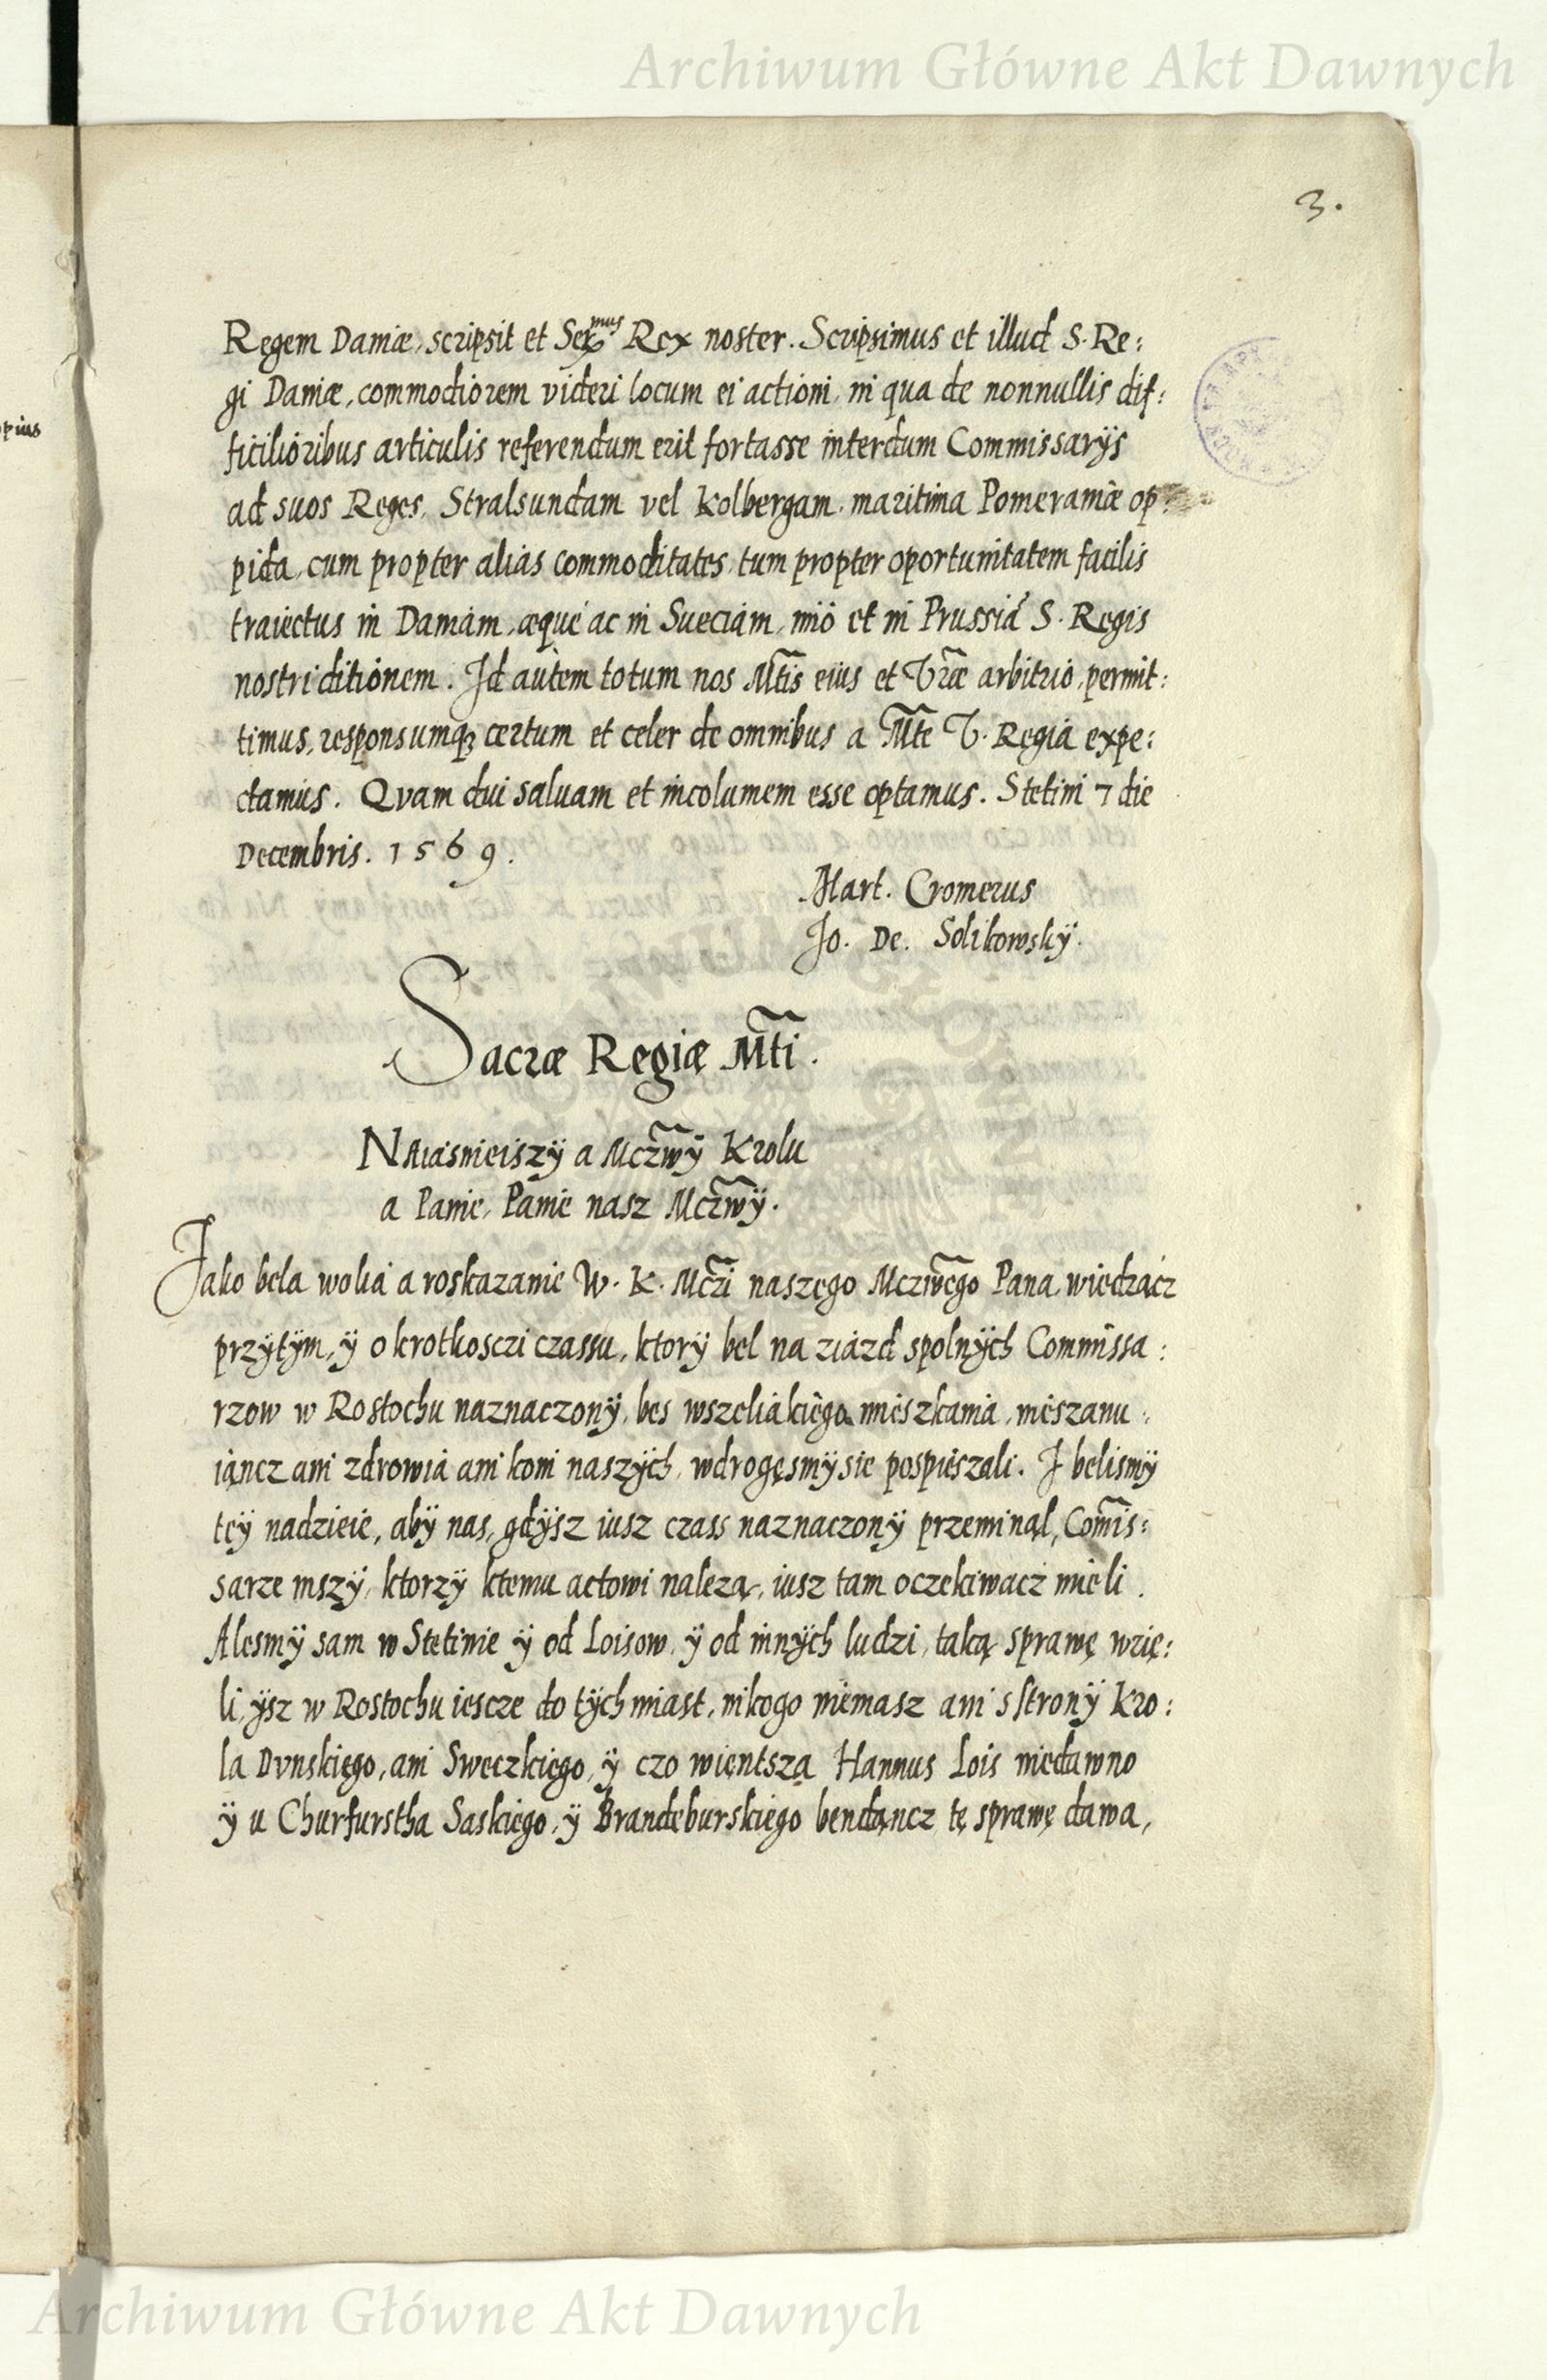 Archiwum Główne Akt Dawnych
3.
pius
Regem Daniæ, scripsit et Sermus Rex noster. Scripsimus et illud S. Re:
gi Daniæ, commodiorem videri locum ei actioni, in qua de nonnullis dif:
ficilioribus articulis referendum erit fortasse interdum Commissarÿs
ad suos Reges, Stralsundam vel Kolbergam, maritima Pomeraniæ op:
pida, cum propter alias commoditates, tum propter oportunitatem facilis
traiectus in Daniam, æque ac in Sueciam, imò et in Prussiã S. Regis
nostri ditionem. Id autem totum nos Mtis eius et Vræ arbitrio, permit:
timus, responsumq; certum et celer de omnibus a Mte V. Regia expe:
ctamus. Qvam diu saluam et incolumem esse optamus. Stetini 7 die
Decembris. 1569.
Mart. Cromerus
Jo. De. Solikowskÿ.
Sacræ Regiæ Mti.
NAiasnieiszÿ a Mczwÿ Krolu
a Panie, Panie nasz Mczwÿ.
Jako bela wolia a roskazanie W. K. Mczi naszego Mcziwego Pana, wiedzącz
przÿtÿm, ÿ o krotkosczi czassu, ktorÿ bel na ziazd spolnÿch Commissa:
rzow w Rostochu naznaczonÿ, bes wszeliakiego mieszkania, nieszanu:
iąncz ani zdrowia ani koni naszÿch, wdrogęsmÿ sie pospieszali. I belismÿ
tęÿ nadzieie, abÿ nas, gdÿsz iusz czass naznaczonÿ przeminął, Comis:
sarze inszÿ, ktorzÿ ktemu actowi należą, iusz tam oczekiwacz mieli.
Alesmÿ sam w Stetinie ÿ od Loisow, ÿ od innÿch ludzi, taką sprawę wzię:
li, ÿsz w Rostochu iescze do tÿchmiast, nikogo niemasz ani s stronÿ Kro:
la Dvnskiego, ani Sweczkiego, ÿ czo wientsza Hannus Lois niedawno
ÿ u Churfurstha Saskiego, ÿ Brandeburskiego bendąncz tę sprawę dawa,
Archiwum Główne Akt Dawnych